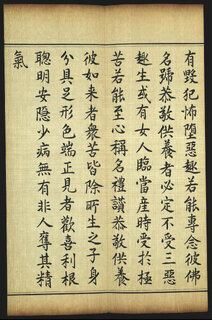 有毀犯怖墮惡趣若能專念彼佛
名號恭敬供養者必定不受三惡
趣生或有女人臨當產時受於極
苦若能至心稱名禮讚恭敬供養
彼如來者衆苦皆除所生之子身
分具足形色端正見者歡喜利根
聰明安隱少病無有非人奪其精
氣